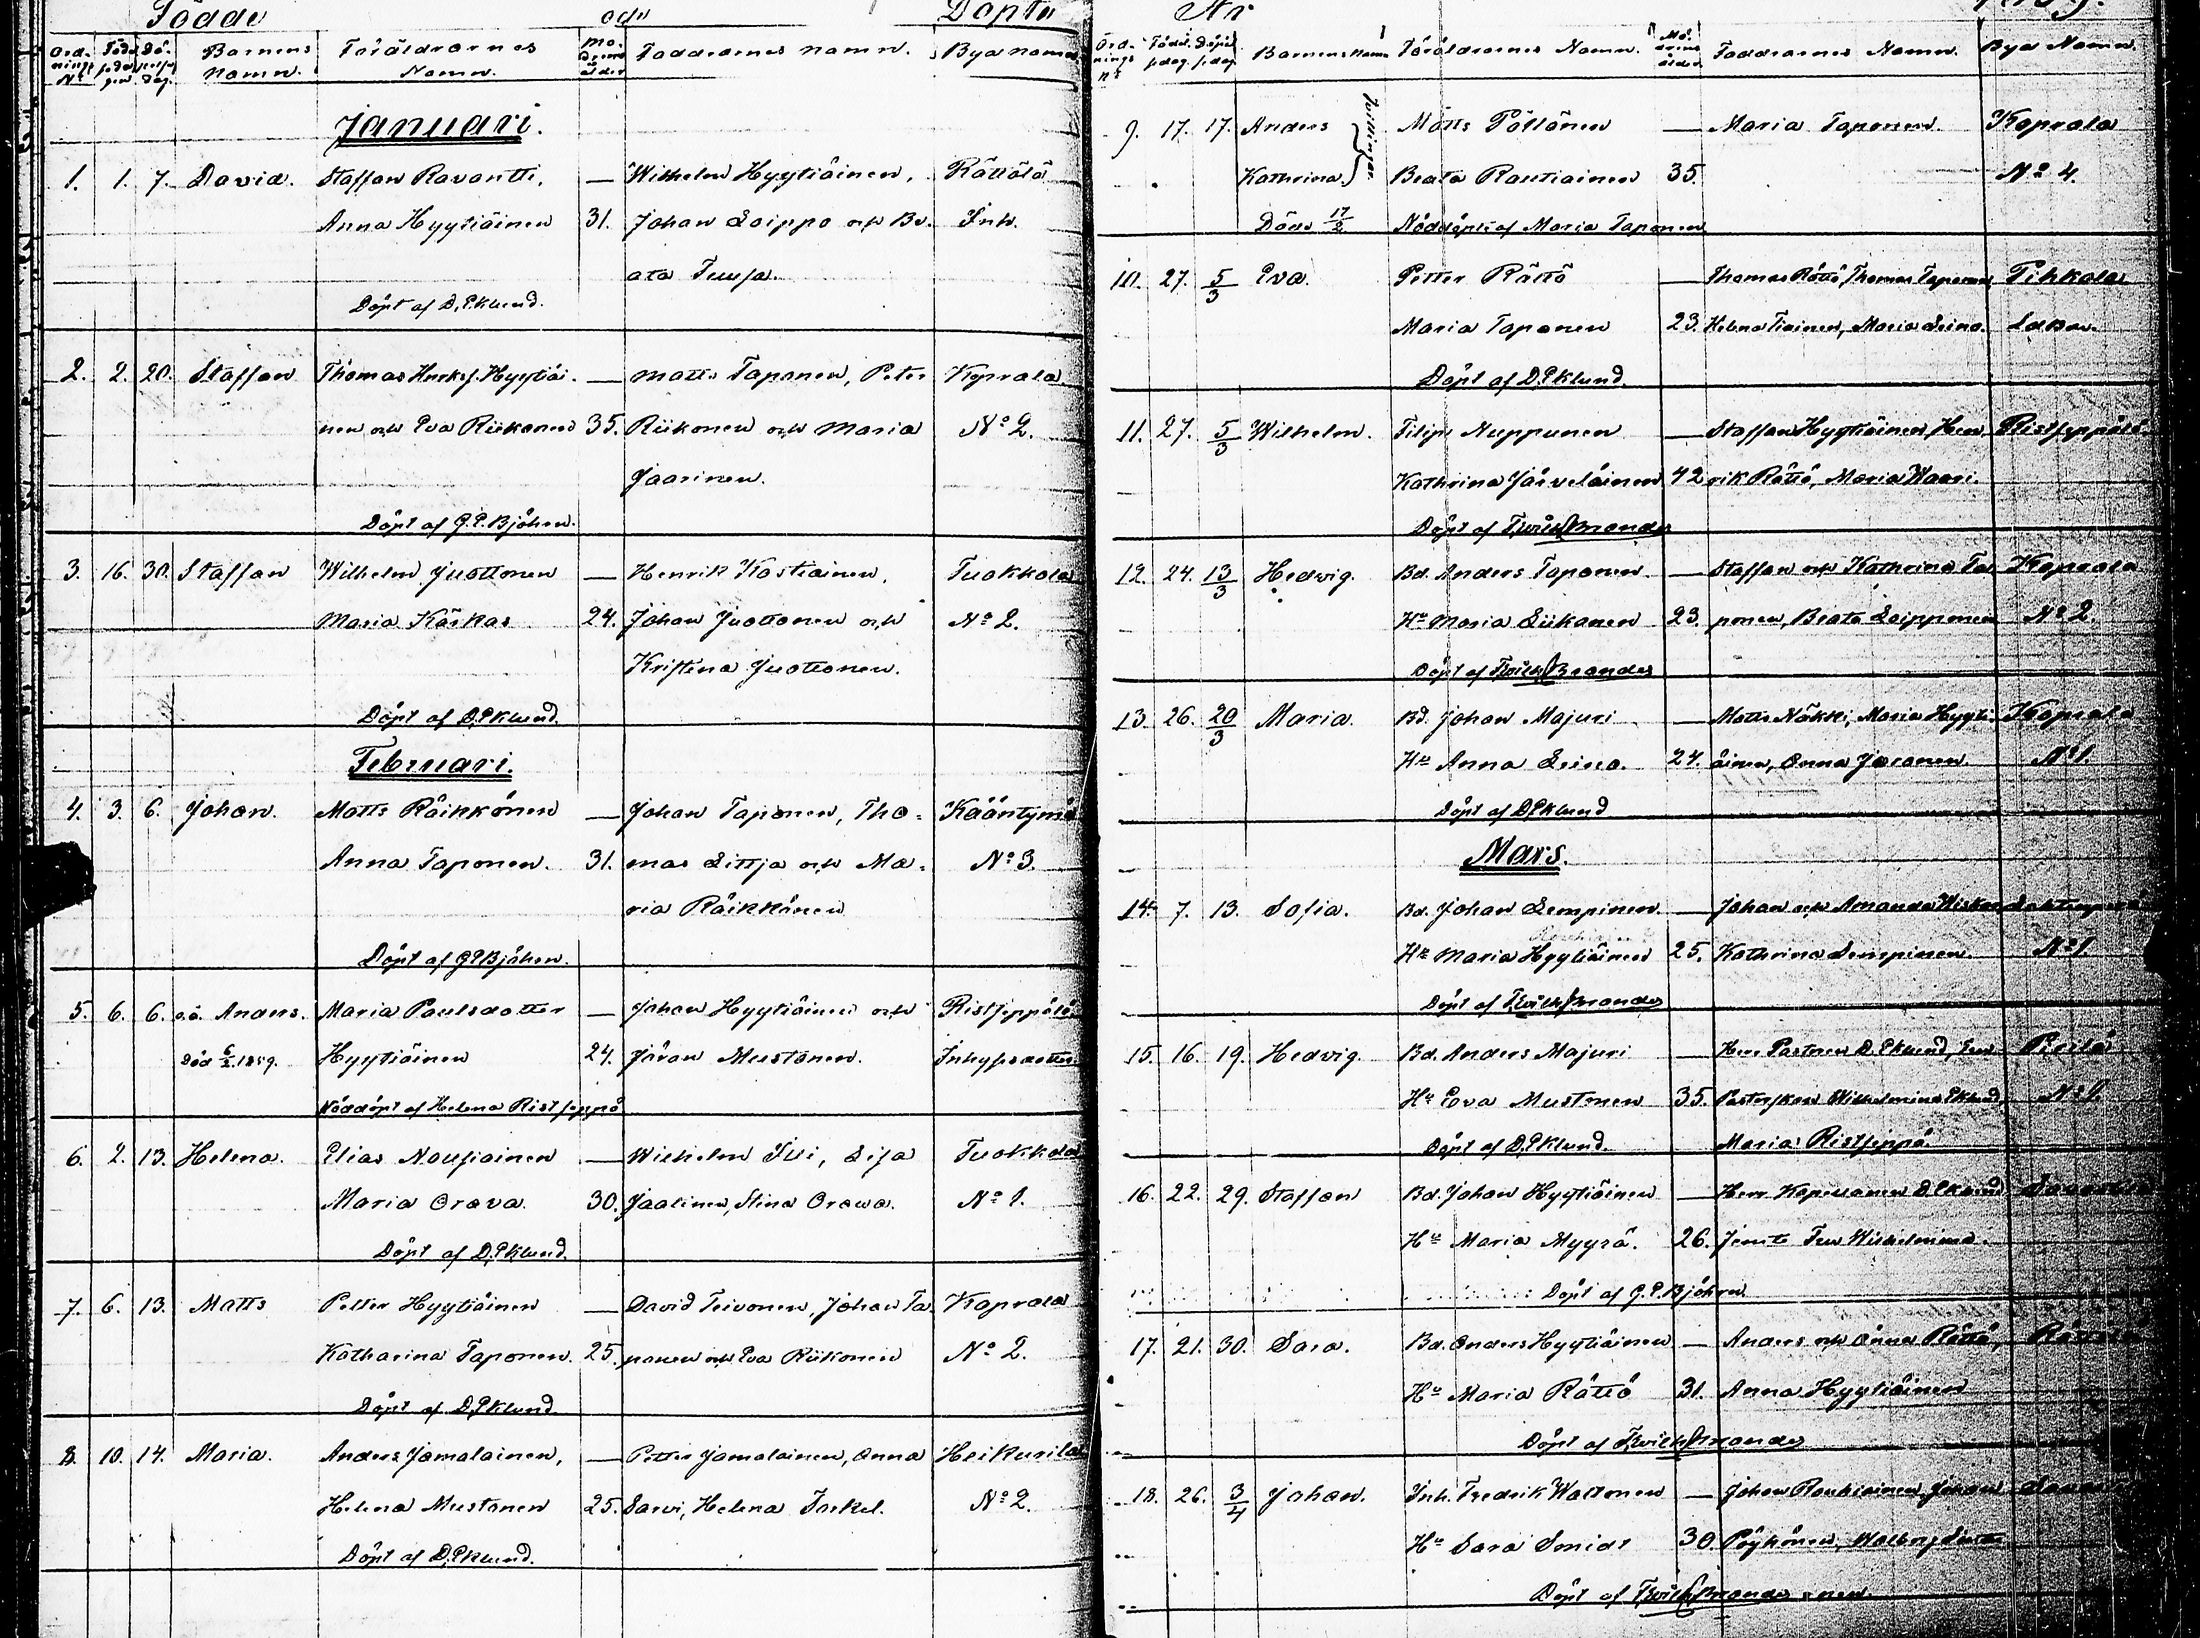 Födde och Döpta
Ord-nings Nº Födelsedagen Döpelsedag Barnens Namn. Föräldrarnes Namn. Moderns ålder Faddrarnes namn. Bya namn
Januari.
1. 1. 7. David. Staffan Ravantti, — Wilhelm Hyytiäinen, Rättölä
Anna Hyytiäinen 31. Johan Loippo och Be- Inh.
ata Tuuja.
Döpt af D. Eklund.
2. 2. 20. Staffan Thomas Hyytiäi- — Matts Taponen, Peter Koprala
nen och Eva Riikonen 35. Riikonen och Maria Nº 2.
Jaarinen.
Döpt af G.E. Björhen.
3. 16. 30. Staffan Wilhelm Juottonen — Henrik Kostiainen, Tuokkola
Maria Kärkas 24. Johan Juottonen och Nº 2.
Kristina Juottonen.
Döpt af D. Eklund.
Februari.
4. 3. 6. Johan. Matts Räikkönen — Johan Taponen, Tho- Kääntymä
Anna Taponen. 31. mas Littja och Ma- Nº 3.
ria Räikkönen
Döpt af G.E. Björhen.
5. 6. 6. o.ä. Anders. Maria Paulsdotter — Johan Hyytiäinen och Ristseppälä
Död 6/2 1859. Hyytiäinen 24. Jöran Mustonen. Inhysedotter
Nöddöpt af Helena Ristseppä
6. 2. 13. Helena. Elias Nousiainen — Wilhelm Sui, Lisa Tuokkola
Maria Orava. 30. Jaalinen, Stina Orawa. Nº 1.
Döpt af D. Eklund.
7. 6. 13. Matts Petter Hyytiäinen — David Teivonen, Johan Ta- Koprala
Katharina Taponen. 25. ponen och Eva Riikonen Nº 2.
Döpt af D. Eklund.
8. 10. 14. Maria. Anders Jamalainen, — Petter Jamalainen, Anna Heikurila
Helena Mustonen 25. Sarvi, Helena Inkel. Nº 2.
Döpt af D. Eklund.
År
Ord-nings Nº Födel.sedag. Döpelsedag Barnens Namn Föräldrarnes Namn. Moderns ålder Faddrarnes Namn. Bya Namn.
9. 17. 17. Anders Matts Pöllönen — Maria Taponen. Koprala
Tvillingar.
Kathrina. Beata Rautiainen 35. Nº 4.
Döde 17/2 Nöddöpte af Maria Taponen
10. 27. 5/3 Eva. Petter Rättö — Thomas Rättö, Thomas Taponen Pihkala
Maria Taponen 23. Helena Tiainen, Maria Leino.
Döpt af D. Eklund.
11. 27. 5/3 Wilhelm. Filip Nuppunen — Staffan Hyytiäinen, Hen- Ristseppälä
Kathrina Järveläinen 42 rik Rättö, Maria Waari.
Döpt af Brander
12. 24. 13/3 Hedvig. Bd. Anders Taponen — Staffan och Kathrina Ta- Koprala
Hu Maria Liikanen 23. ponen, Beata Loipponen Nº 2
Döpt af Brander
13. 26. 20/3 Maria. Bd. Johan Majuri — Matts Näkki, Maria Hyyti- Koprala
Hu Anna Leino. 24. äinen, Anna Joronen. Nº 1.
Döpt af D. Eklund
Mars.
14. 7. 13. Sofia. Bd. Johan Lempinen. — Johan och Amanda
Hu Maria Hyytiäinen 25. Kathrina Lempinen. Nº 1.
Döpt af Brander
15. 16. 19. Hedvig. Bd. Anders Majuri — Herr Pastoren D. Eklund, Pirilä
Hu Eva Mustonen 35. Pastorskan Wilhelmina Eklund, Nº 1.
Döpt af D. Eklund. Maria Ristseppä
16. 22. 29. Staffan Bd. Johan Hyytiäinen — Herr Kapellanen D. Eklund
Hu Maria Myyrä. 26. jemte Fru Wilhelmina.
Döpt af G.E. Björhen
17. 21. 30. Sara. Bd. Anders Hyytiäinen — Anders och Anna Rättö,
Hu Maria Rättö 31. Anna Hyytiäinen
Döpt af Brander
18. 26. 3/4 Johan. Inh. Fredrik Waltonen — Johan Rautiainen, Johan
Hu Sara Smidt 30. Pöyhönen,
Döpt af Brander